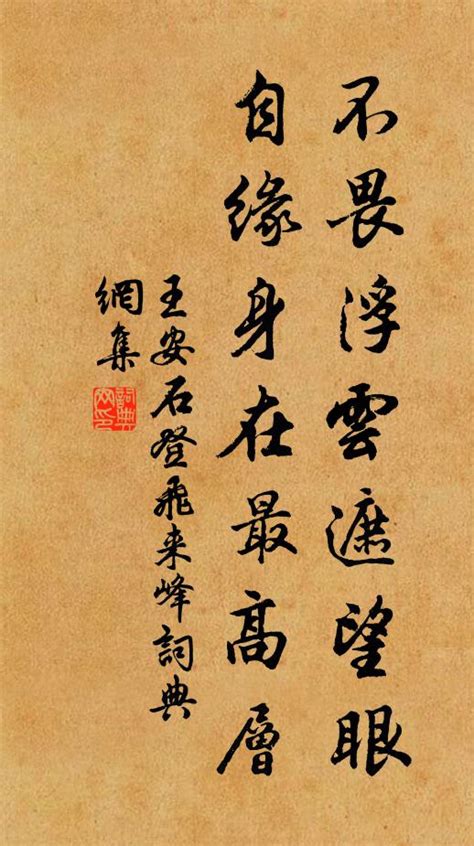 不畏浮雲遮望眼
自緣身在最高層
王安石登飛来峰詞典
網集
詞典網印